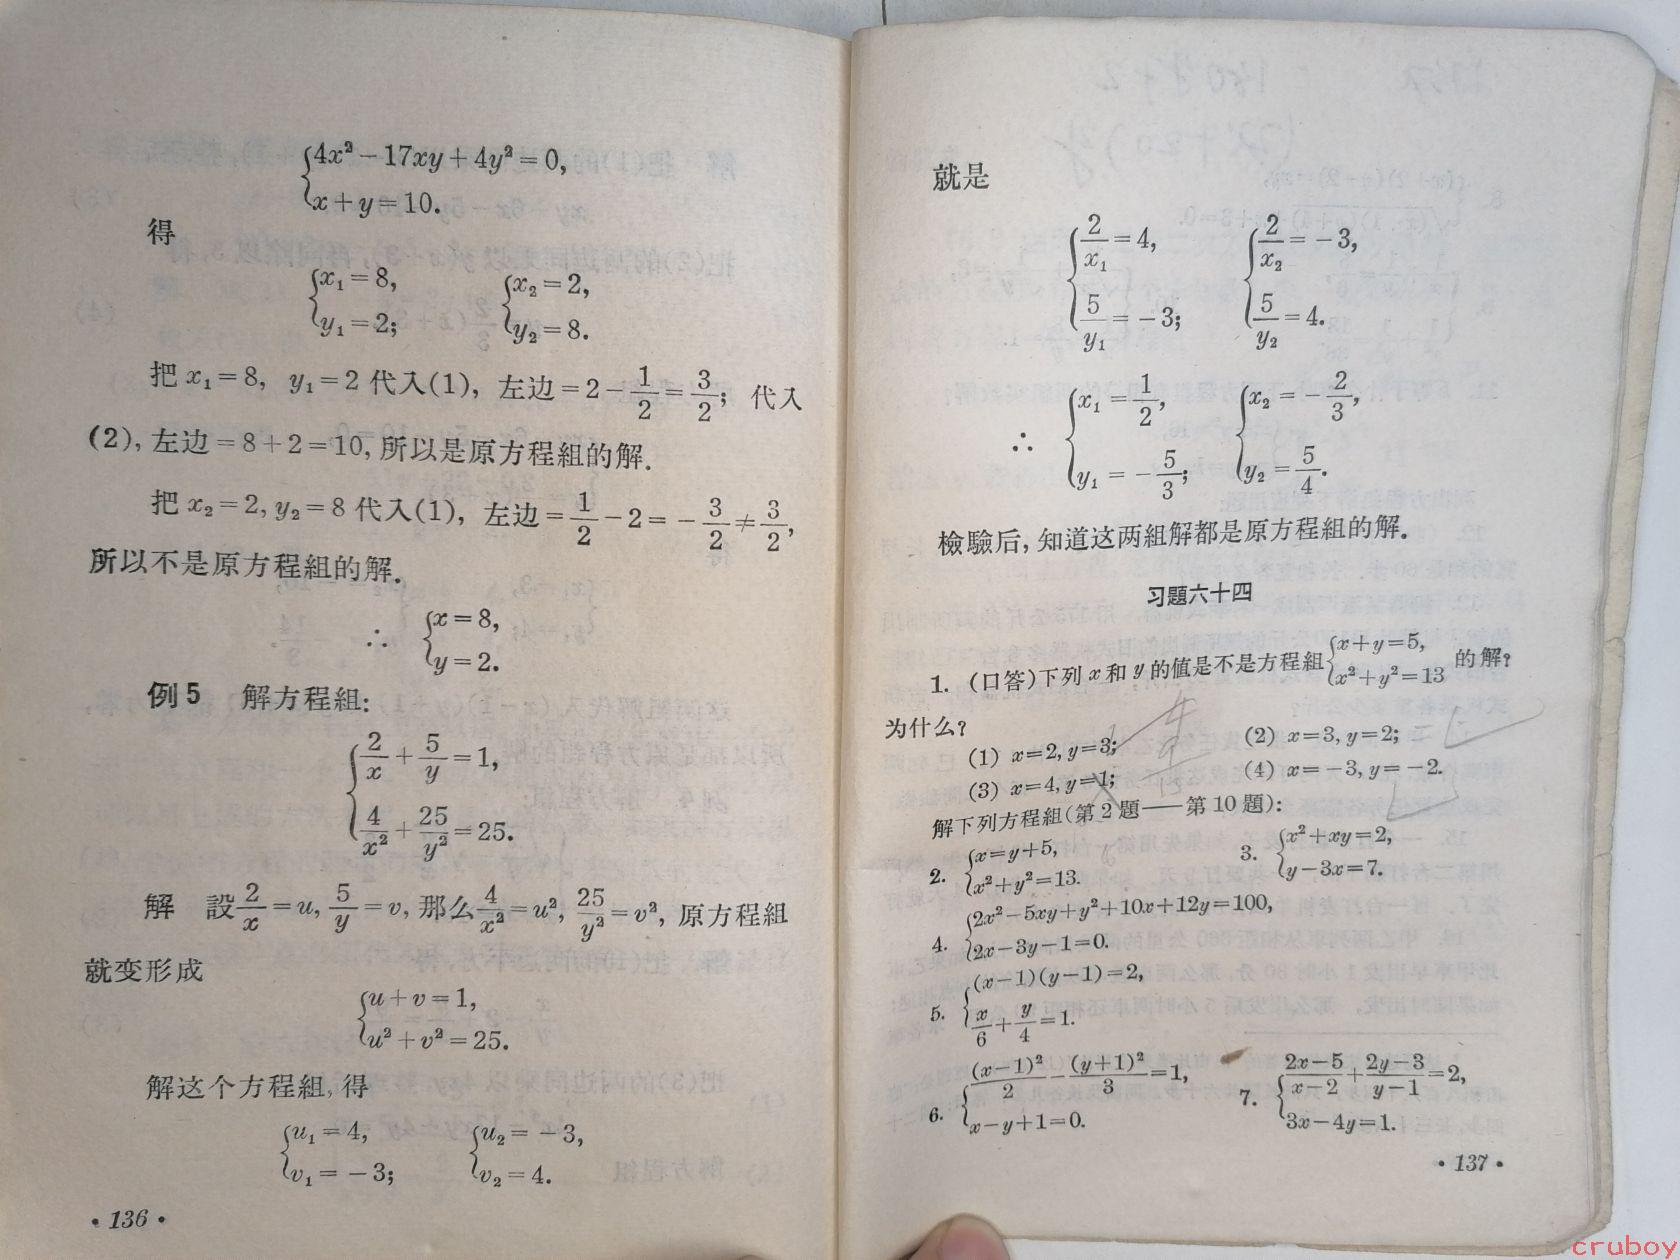 4x²－17xy＋4y²＝0,
x＋y＝10.
得
x₁＝8, x₂＝2,
y₁＝2; y₂＝8.
把 x₁＝8, y₁＝2 代入(1), 左边＝2－1/2＝3/2; 代入
(2), 左边＝8＋2＝10, 所以是原方程組的解.
把 x₂＝2, y₂＝8 代入(1), 左边＝1/2－2＝－3/2≠3/2,
所以不是原方程組的解.
∴ x＝8,
y＝2.
例5 解方程組:
2/x＋5/y＝1,
4/x²＋25/y²＝25.
解 設 2/x＝u, 5/y＝v, 那么 4/x²＝u², 25/y²＝v², 原方程組
就变形成
u＋v＝1,
u²＋v²＝25.
解这个方程組, 得
u₁＝4, u₂＝－3,
v₁＝－3; v₂＝4.
·136·
就是
2/x₁＝4, 2/x₂＝－3,
5/y₁＝－3; 5/y₂＝4.
∴ x₁＝1/2, x₂＝－2/3,
y₁＝－5/3; y₂＝5/4.
檢驗后, 知道这两組解都是原方程組的解.
习題六十四
1. (口答)下列 x 和 y 的値是不是方程組 {x＋y＝5, x²＋y²＝13 的解?
为什么?
(1) x＝2, y＝3; (2) x＝3, y＝2;
(3) x＝4, y＝1; (4) x＝－3, y＝－2.
解下列方程組(第2題——第10題):
2. {x＝y＋5, x²＋y²＝13. 3. {x²＋xy＝2, y－3x＝7.
4. {2x²－5xy＋y²＋10x＋12y＝100,
2x－3y－1＝0.
5. {(x－1)(y－1)＝2,
x/6＋y/4＝1.
6. {(x－1)²/2－(y＋1)²/3＝1, x－y＋1＝0. 7. {(2x－5)/(x－2)＋(2y－3)/(y－1)＝2, 3x－4y＝1.
·137·
cruboy